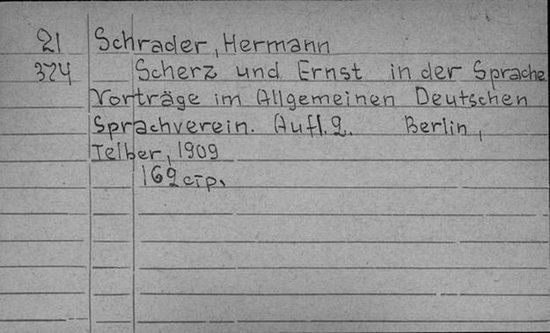 21 Schrader, Hermann
374 Scherz und Ernst in der Sprache
Vorträge im Allgemeinen Deutschen
Sprachverein. Aufl. 2. Berlin,
Telber, 1909
162 стр.